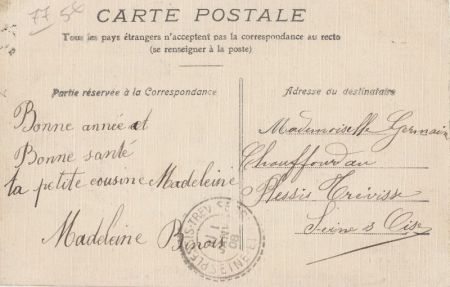 77 54
CARTE POSTALE
Tous les pays étrangers n'acceptent pas la correspondance au recto
(se renseigner à la poste)
Partie réservée à la Correspondance
Bonne année et
Bonne santé
ta petite cousine Madeleine
Madeleine Benoist
Adresse du destinataire
Mademoiselle Germaine
Chauffour au
Plessis Trévisse
Seine & Oise